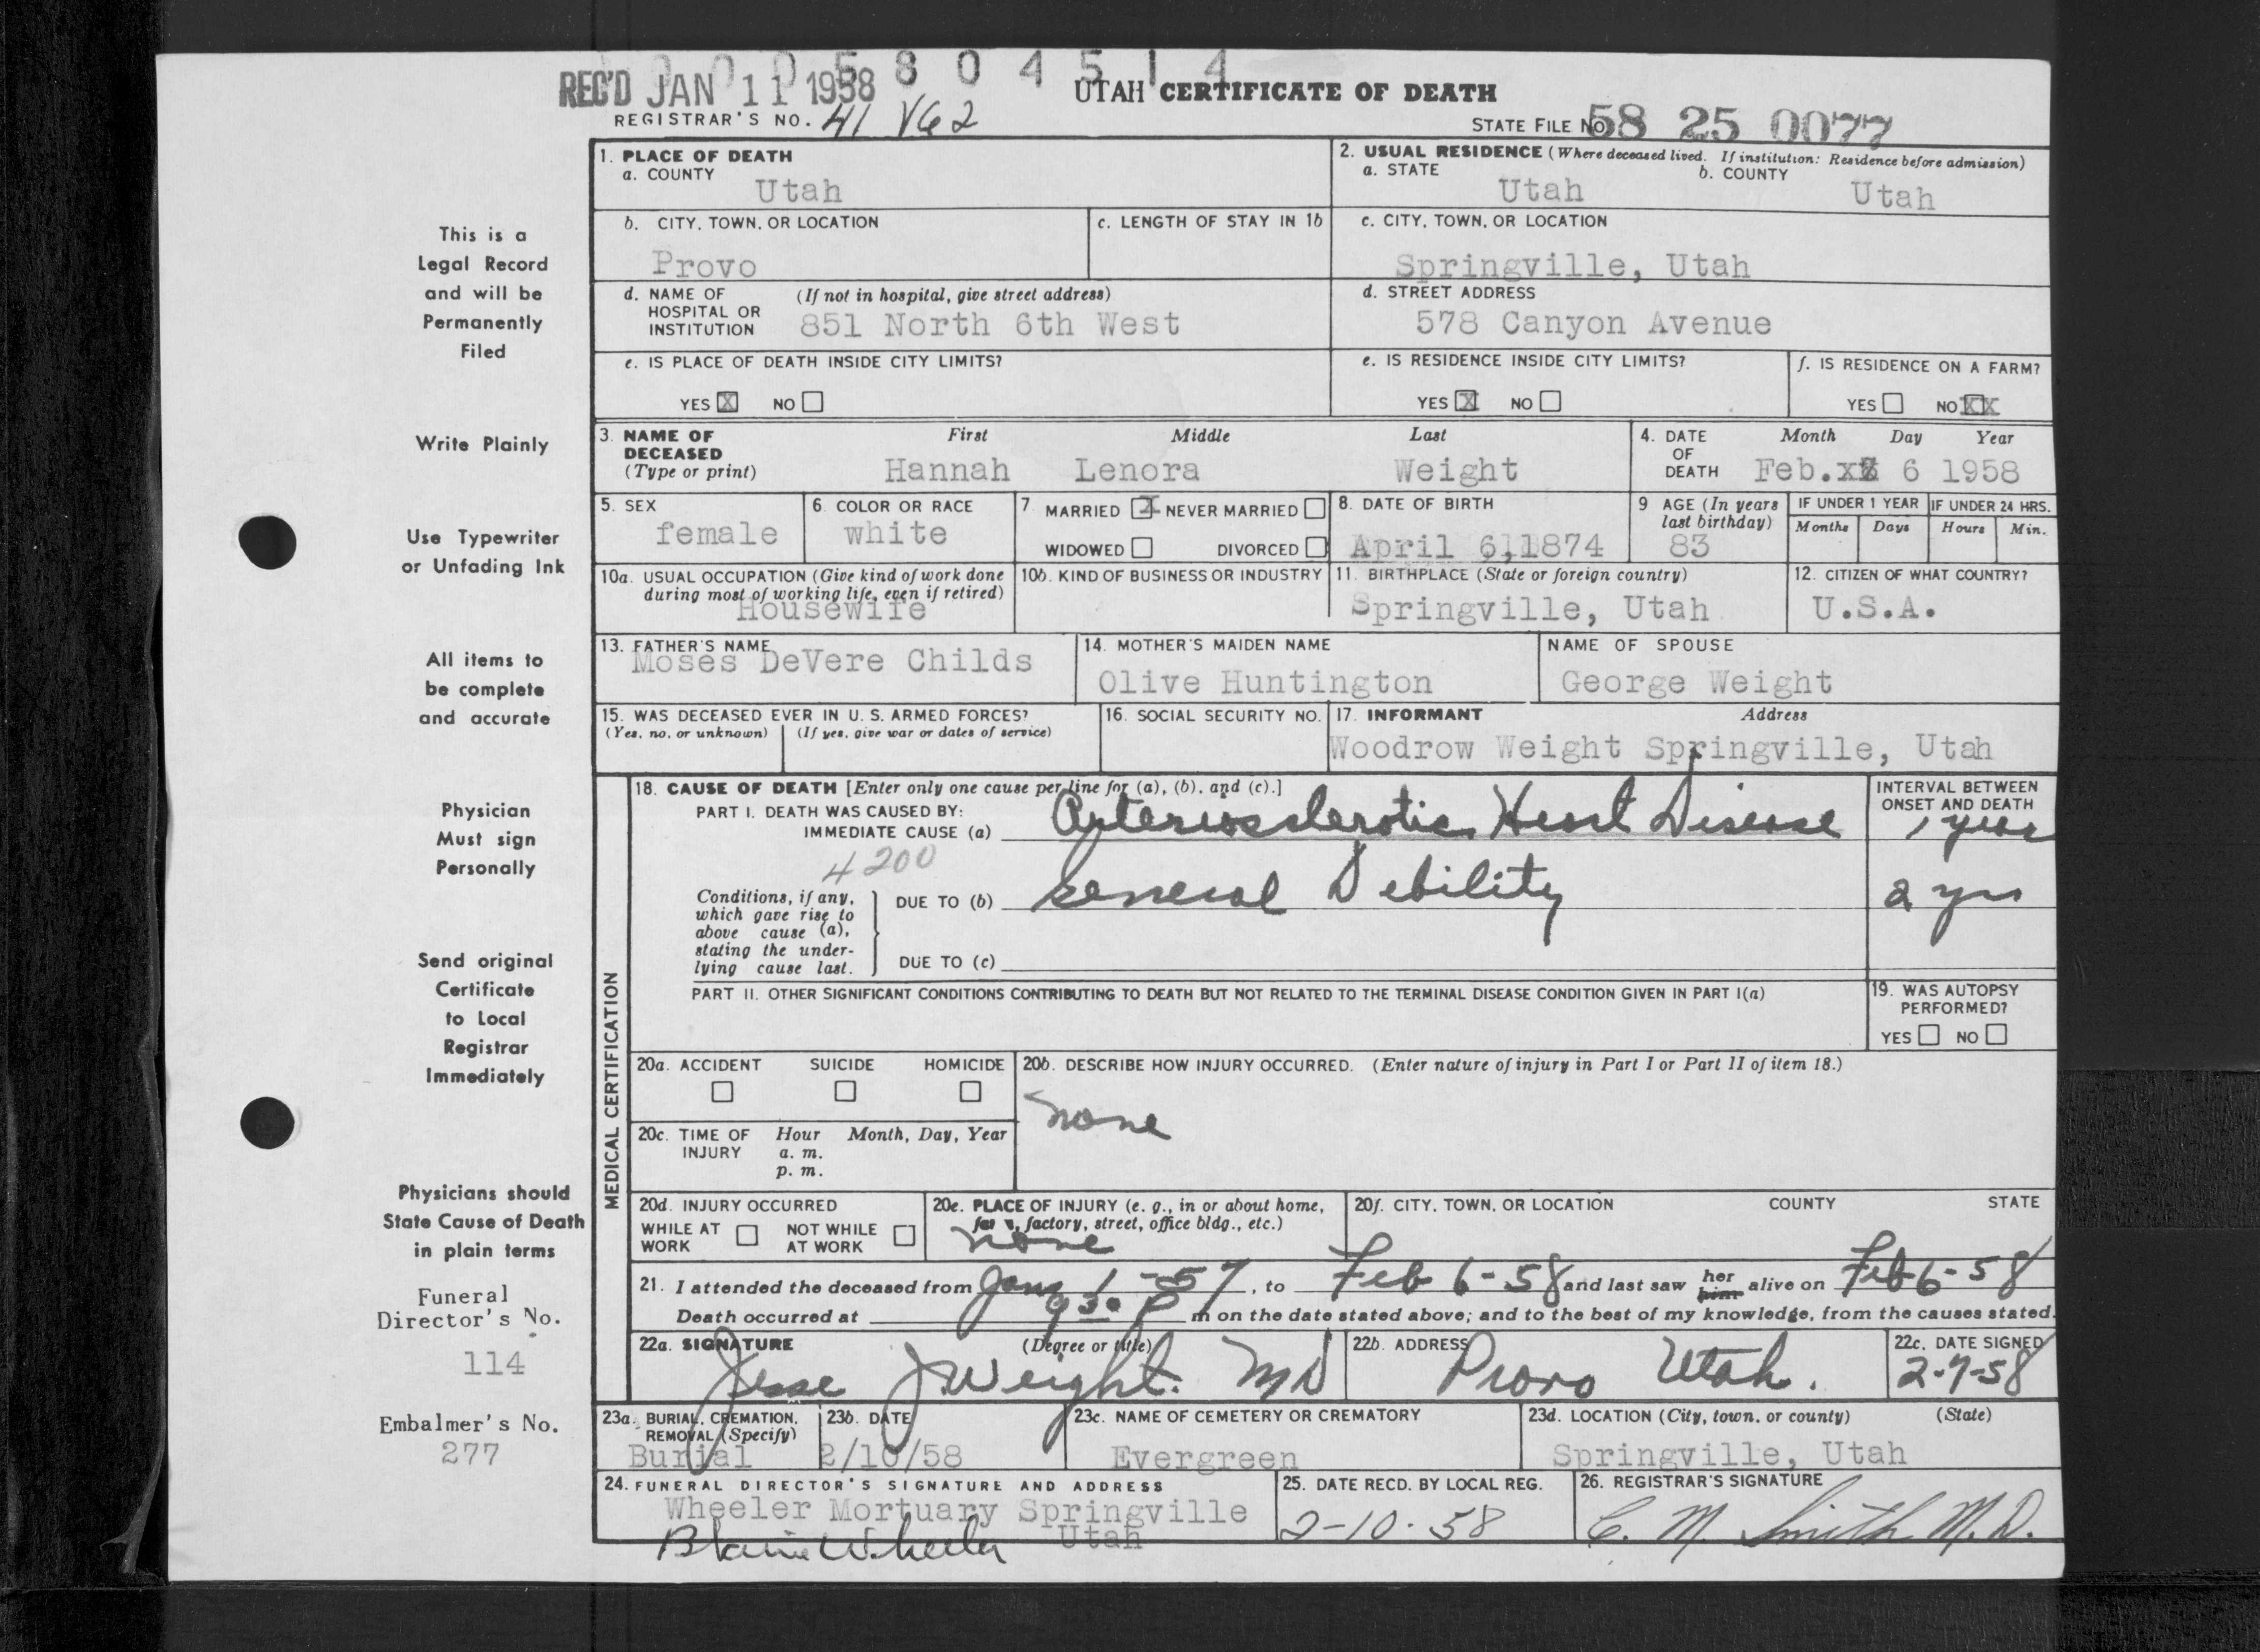 0 0 0 5 8 0 4 5 1 4
REC'D JAN 11 1958
UTAH CERTIFICATE OF DEATH
REGISTRAR'S NO. 41 V62
STATE FILE NO. 58 25 0077
1. PLACE OF DEATH
a. COUNTY
Utah
2. USUAL RESIDENCE (Where deceased lived. If institution: Residence before admission)
a. STATE
Utah
b. COUNTY
Utah
b. CITY, TOWN, OR LOCATION
Provo
c. LENGTH OF STAY IN 1b
c. CITY, TOWN, OR LOCATION
Springville, Utah
d. NAME OF HOSPITAL OR INSTITUTION
(If not in hospital, give street address)
851 North 6th West
d. STREET ADDRESS
578 Canyon Avenue
e. IS PLACE OF DEATH INSIDE CITY LIMITS?
YES X NO
e. IS RESIDENCE INSIDE CITY LIMITS?
YES X NO
f. IS RESIDENCE ON A FARM?
YES NO XX
3. NAME OF DECEASED
(Type or print)
First Middle Last
Hannah Lenora Weight
4. DATE OF DEATH
Month Day Year
Feb. 6 1958
5. SEX
female
6. COLOR OR RACE
white
7. MARRIED X NEVER MARRIED
WIDOWED DIVORCED
8. DATE OF BIRTH
April 6,1874
9 AGE (In years last birthday)
83
IF UNDER 1 YEAR
Months Days
IF UNDER 24 HRS.
Hours Min.
10a. USUAL OCCUPATION (Give kind of work done during most of working life, even if retired)
Housewife
10b. KIND OF BUSINESS OR INDUSTRY
11. BIRTHPLACE (State or foreign country)
Springville, Utah
12. CITIZEN OF WHAT COUNTRY?
U.S.A.
13. FATHER'S NAME
Moses DeVere Childs
14. MOTHER'S MAIDEN NAME
Olive Huntington
NAME OF SPOUSE
George Weight
15. WAS DECEASED EVER IN U. S. ARMED FORCES?
(Yes, no, or unknown) (If yes, give war or dates of service)
16. SOCIAL SECURITY NO.
17. INFORMANT Address
Woodrow Weight Springville, Utah
MEDICAL CERTIFICATION
18. CAUSE OF DEATH [Enter only one cause per line for (a), (b), and (c).]
PART I. DEATH WAS CAUSED BY:
IMMEDIATE CAUSE (a) Arteriosclerotic Heart Disease
INTERVAL BETWEEN ONSET AND DEATH
1 year
4200
Conditions, if any, which gave rise to above cause (a), stating the underlying cause last.
DUE TO (b) General Debility
2 yrs
DUE TO (c)
PART II. OTHER SIGNIFICANT CONDITIONS CONTRIBUTING TO DEATH BUT NOT RELATED TO THE TERMINAL DISEASE CONDITION GIVEN IN PART I(a)
19. WAS AUTOPSY PERFORMED?
YES NO
20a. ACCIDENT SUICIDE HOMICIDE
20b. DESCRIBE HOW INJURY OCCURRED. (Enter nature of injury in Part I or Part II of item 18.)
none
20c. TIME OF INJURY
Hour Month, Day, Year
a. m.
p. m.
20d. INJURY OCCURRED
WHILE AT WORK NOT WHILE AT WORK
20e. PLACE OF INJURY (e. g., in or about home, farm, factory, street, office bldg., etc.)
none
20f. CITY, TOWN, OR LOCATION COUNTY STATE
21. I attended the deceased from Jany 1-57, to Feb 6-58 and last saw her him alive on Feb 6-58
Death occurred at 9 30 P m on the date stated above; and to the best of my knowledge, from the causes stated.
22a. SIGNATURE (Degree or title)
Jesse J Weight. MD
22b. ADDRESS
Provo Utah.
22c. DATE SIGNED
2-7-58
23a. BURIAL, CREMATION, REMOVAL (Specify)
Burial
23b. DATE
2/10/58
23c. NAME OF CEMETERY OR CREMATORY
Evergreen
23d. LOCATION (City, town, or county) (State)
Springville, Utah
24. FUNERAL DIRECTOR'S SIGNATURE AND ADDRESS
Wheeler Mortuary Springville
Utah
Blaine Wheeler
25. DATE RECD. BY LOCAL REG.
2-10-58
26. REGISTRAR'S SIGNATURE
C. M. Smith M.D.
This is a
Legal Record
and will be
Permanently
Filed
Write Plainly
Use Typewriter
or Unfading Ink
All items to
be complete
and accurate
Physician
Must sign
Personally
Send original
Certificate
to Local
Registrar
Immediately
Physicians should
State Cause of Death
in plain terms
Funeral
Director's No.
114
Embalmer's No.
277